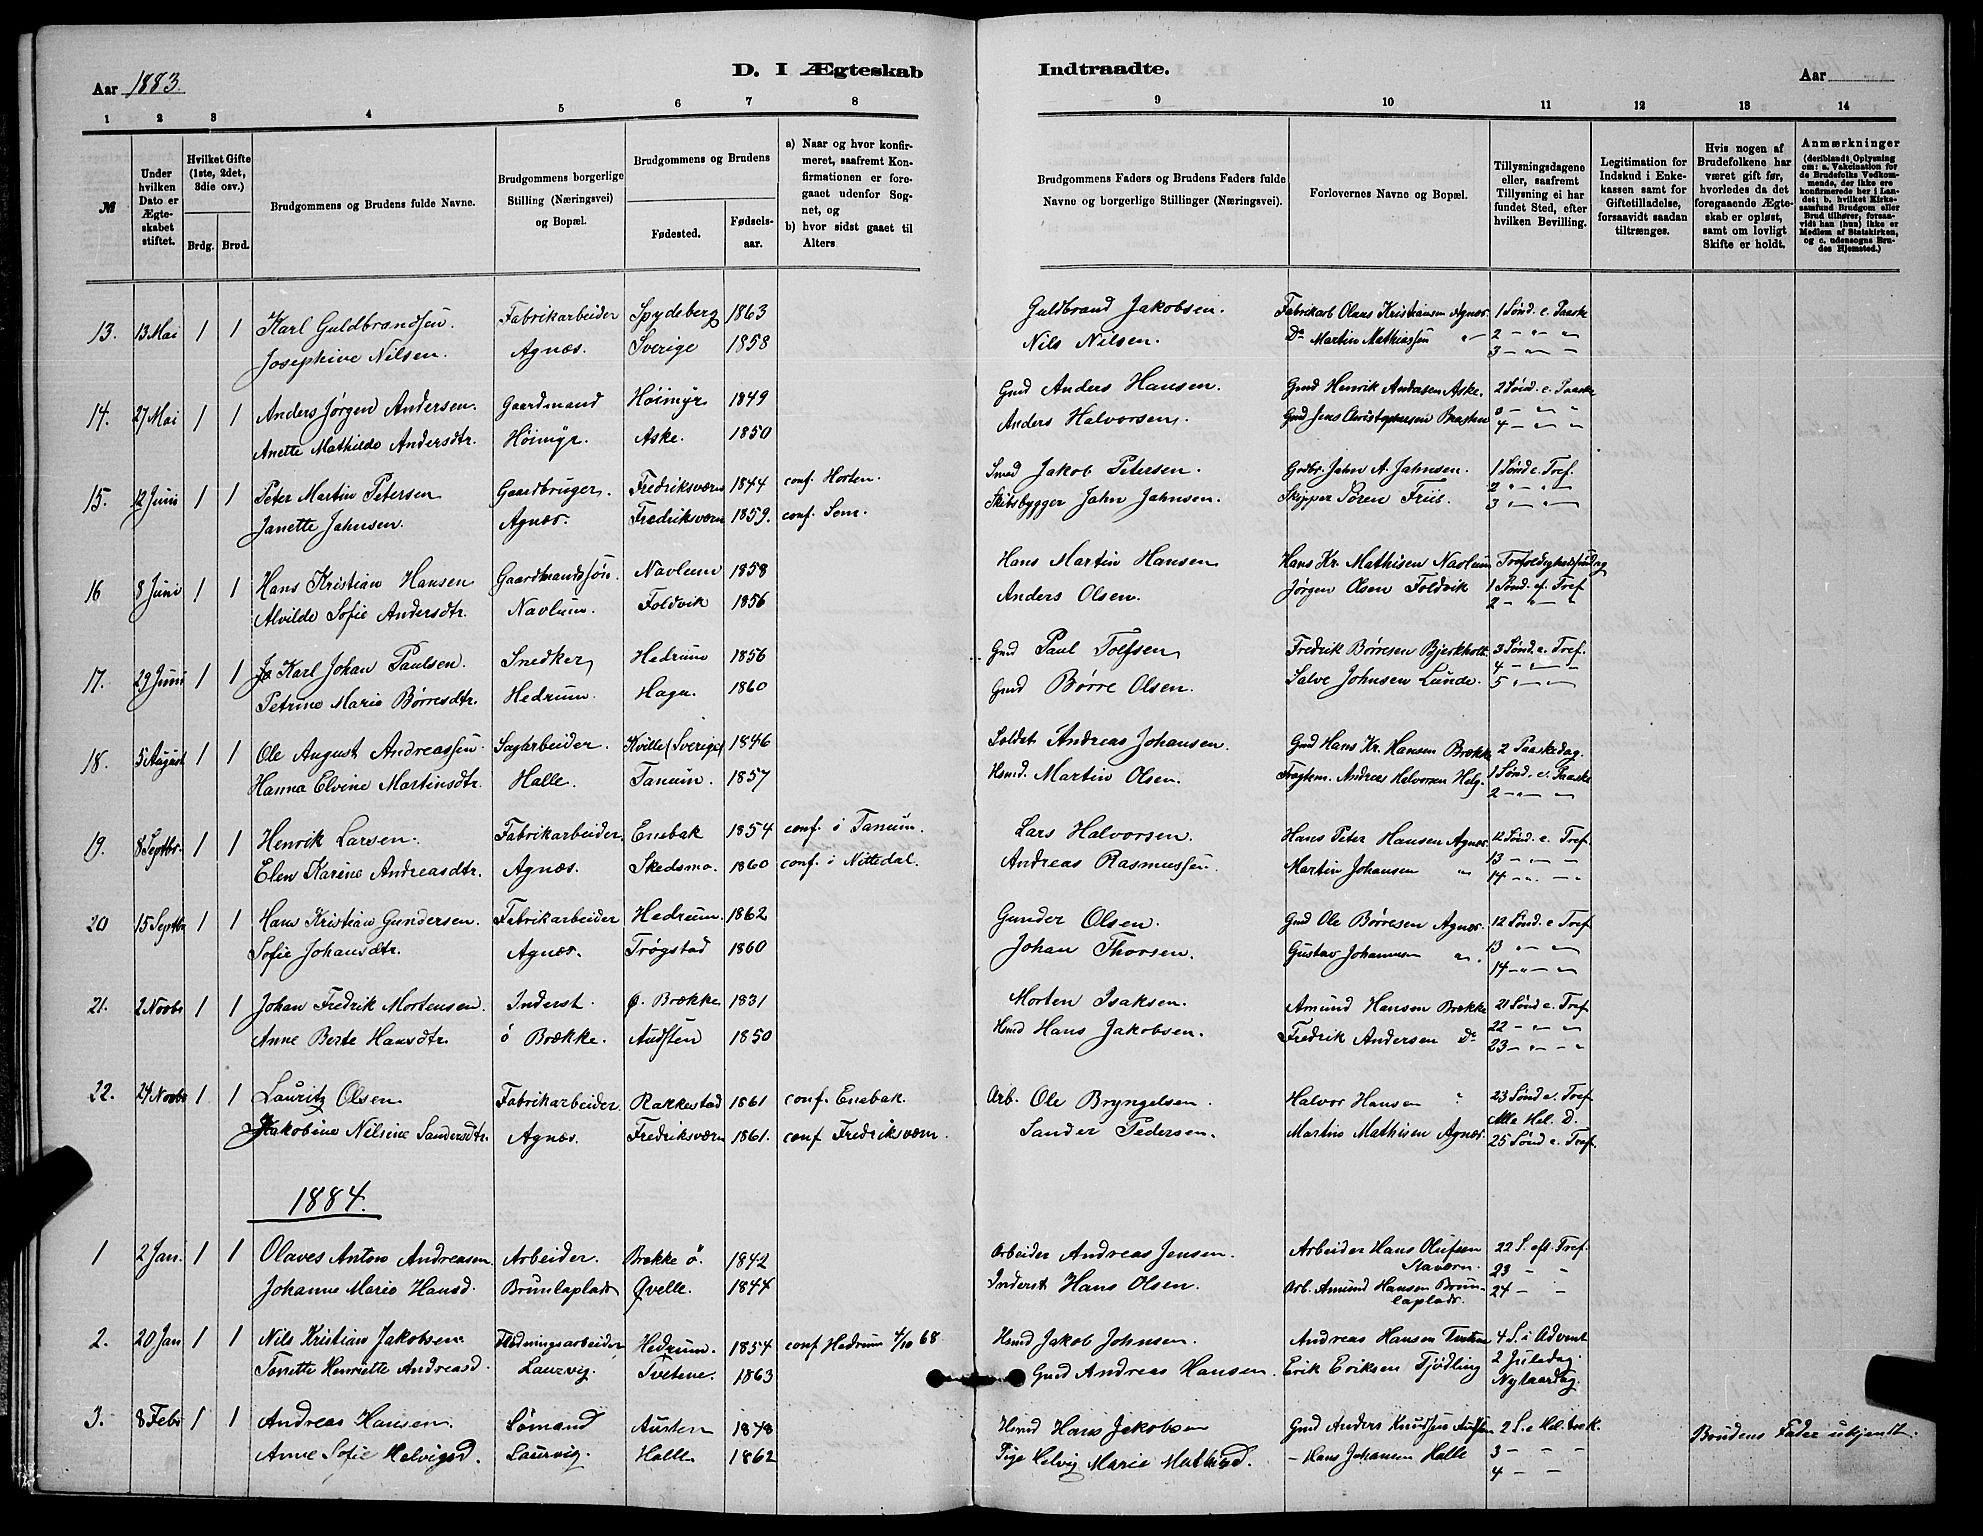 Aar 1883.
D. I Ægteskab
Indtraadte.
Aar
1 2 3 4 5 6 7 8 9 10 11 12 13 14
№
Under hvilken Dato er Ægteskabet stiftet.
Hvilket Gifte (1ste, 2det, 3die osv.)
Brdg. Brud.
Brudgommens og Brudens fulde Navne.
Brudgommens borgerlige Stilling (Næringsvei) og Bopæl.
Brudgommens og Brudens
Fødested. Fødselsaar.
a) Naar og hvor konfirmeret, saafremt Konfirmationen er foregaaet udenfor Sognet, og
b) hvor sidst gaaet til Alters.
Brudgommens Faders og Brudens Faders fulde Navne og borgerlige Stillinger (Næringsvei).
Forlovernes Navne og Bopæl.
Tillysningsdagene eller, saafremt Tillysning ei har fundet Sted, efter hvilken Bevilling.
Legitimation for Indskud i Enkekassen samt for Giftetilladelse, forsaavidt saadan tiltrænges.
Hvis nogen af Brudefolkene har været gift før, hvorledes da det foregaaende Ægteskab er opløst, samt om lovligt Skifte er holdt.
Anmærkninger (deriblandt Oplysning om: a. Vakcination for de Brudefolks Vedkommende, der ikke ere konfirmerede her i Landet; b. hvilket Kirkesamfund Brudgom eller Brud tilhører, forsaavidt han (hun) ikke er Medlem af Statskirken, og c. udensogns Brudes Hjemsted.)
13. 13 Mai 1 1 Karl Guldbrandsen. Fabrikarbeider Spydeberg 1863 Guldbrand Jakobsen. Fabrikarb Olaus Kristiansen Agnæs 1 Sønd. e. Paaske
Josephine Nilsen. Agnæs. Sverige 1858 Nils Nilsen. Do Martin Mathiassen " 2 — " "
3 — " "
14. 27 Mai 1 1 Anders Jørgen Andersen. Gaardmand Høimyr 1849 Gmd Anders Hansen. Gmd Henrik Andersen Aske. 2 Sønd. e. Paaske
Anette Mathilde Andersdtr. Høimyr. Aske. 1850 Anders Halvorsen. Gmd Jens Christophersen 3 — " "
4 — " "
15. 12 Juni 1 1 Peter Martin Petersen Gaardbruger. Fredriksværn 1844 conf. Horten. Smed Jakob Petersen. Grdbr. Jahn A. Jahnsen. 1 Sønd e. Tref.
Janette Jahnsen. Agnæs. Fredriksværn 1859. conf. Sem. Skibsbygger Jahn Jahnsen. Skipper Søren Friis. 2 " "
3 " — "
16 8 Juni 1 1 Hans Kristian Hansen Gaardmandssøn. Navlum 1858 Hans Martin Hansen Hans Kr. Mathisen Navlum Trefoldighedssøndag
Alvilde Sofie Andersdtr. Navlum. Foldvik 1856 Anders Olsen. Jørgen Olsen Foldvik 1 Sønd. ef. Tref
2 — " — "
17. 29 Juni 1 1 Karl Johan Paulsen. Snedker, Hedrum 1856 Gmd Paul Tolfsen Fredrik Børresen Bjerkholt. 3 Sønd. e. Tref.
Petrine Marie Børresdtr. Hedrum. Hagn 1860 Gmd Børre Olsen. Salve Johnsen Lunde. 4 — " "
5 " — "
18. 5 August 1 1 Ole August Andreassen. Sagarbeider. Kville (Sverige) 1846 Soldat Andreas Johansen. Gmd Hans Kr. Hansen Brække 2 Paaskedag.
Hanna Elvine Martinsdtr. Halle. Tanum. 1857 Hsmd. Martin Olsen. Andreas Halvorsen Helg. 1 Sønd. e. Paaske
2 — " — "
19. 8 Septbr. 1 1 Henrik Larsen. Fabrikarbeider. Enebak 1854 conf. i Tanum. Lars Halvorsen. Hans Peter Hansen Agnæs. 12 Sønd. e. Tref.
Elen Karine Andreasdtr. Agnæs. Skedsmo. 1860 conf. i Nittedal. Andreas Rasmussen. Martin Johansen " 13 — " — "
14 — " — "
20 15 Septbr 1 1 Hans Kristian Gundersen. Fabrikarbeider Hedrum. 1862 Gunder Olsen. Gmd Ole Børresen Agnæs. 12 Sønd. e Tref
Sofie Johansdtr. Agnæs. Trøgstad 1860 Johan Thorsen. Gustav Johannesen " 13 " — "
14 — " — "
21. 2 Novbr 1 1 Johan Fredrik Mortensen. Inderst. Ø. Brække 1831 Morten Isaksen. Amund Hansen Brække 21 Sønd e. Tref
Anne Berte Hansdtr. ö Brække. Austen 1850 Hsmd Hans Jakobsen. Fredrik Andersen Do 22 — " — "
23 — " — "
22. 24 Novbr 1 1 Lauritz Olsen. Fabrikarbeider. Rakkestad 1861 conf. Enebak. Arb. Ole Bryngelsen. Halvor Hansen " 23 Sønd e. Tref
Jakobine Nilsine Sandersdtr. Agnæs. Fredriksværn 1861. conf Fredriksværn. Sander Pedersen. Martin Mathisen Agnæs. Alle Hel. D.
25 Sønd e. Tref.
1884.
1 2 Jan. 1 1 Olaves Anton Andreasen Arbeider. Brække ö. 1842 Arbeider Andreas Jensen. Arbeider Hans Olufsen Stavern. 22 S. eft. Tref.
Johanne Marie Hansd. Brunlaplads Qvelle. 1844 Inderst Hans Olsen. Arb. Amund Hansen Brunlaplads. 23 — "
24 — "
2. 20 Jan 1 1 Nils Kristian Jakobsen Flødningsarbeider Hedrum. 1854 conf Hedrum 4/10 68 Hsmd Jakob Johnsen. Andreas Hansen Tvetene 4 S. i Advent
Tonette Henriette Andreasd. Laurvig. Tvetene. 1863 Gmd Andreas Hansen. Erik Eriksen Tjødling 2 Juledag.
Nytaarsdag.
3. 8 Febr 1 1 Andreas Hansen. Sømand Austen 1848 Hsmd Hans Jakobsen Gmd Anders Knudsen Austen 2 S. e Hel. trek. Brudens Fader ukjendt.
Anne Sofie Helvigsd. Laurvig. Halle 1862 Pige Helvig Marie Mathisd. — Hans Johansen Halle 3 — "
4 — "